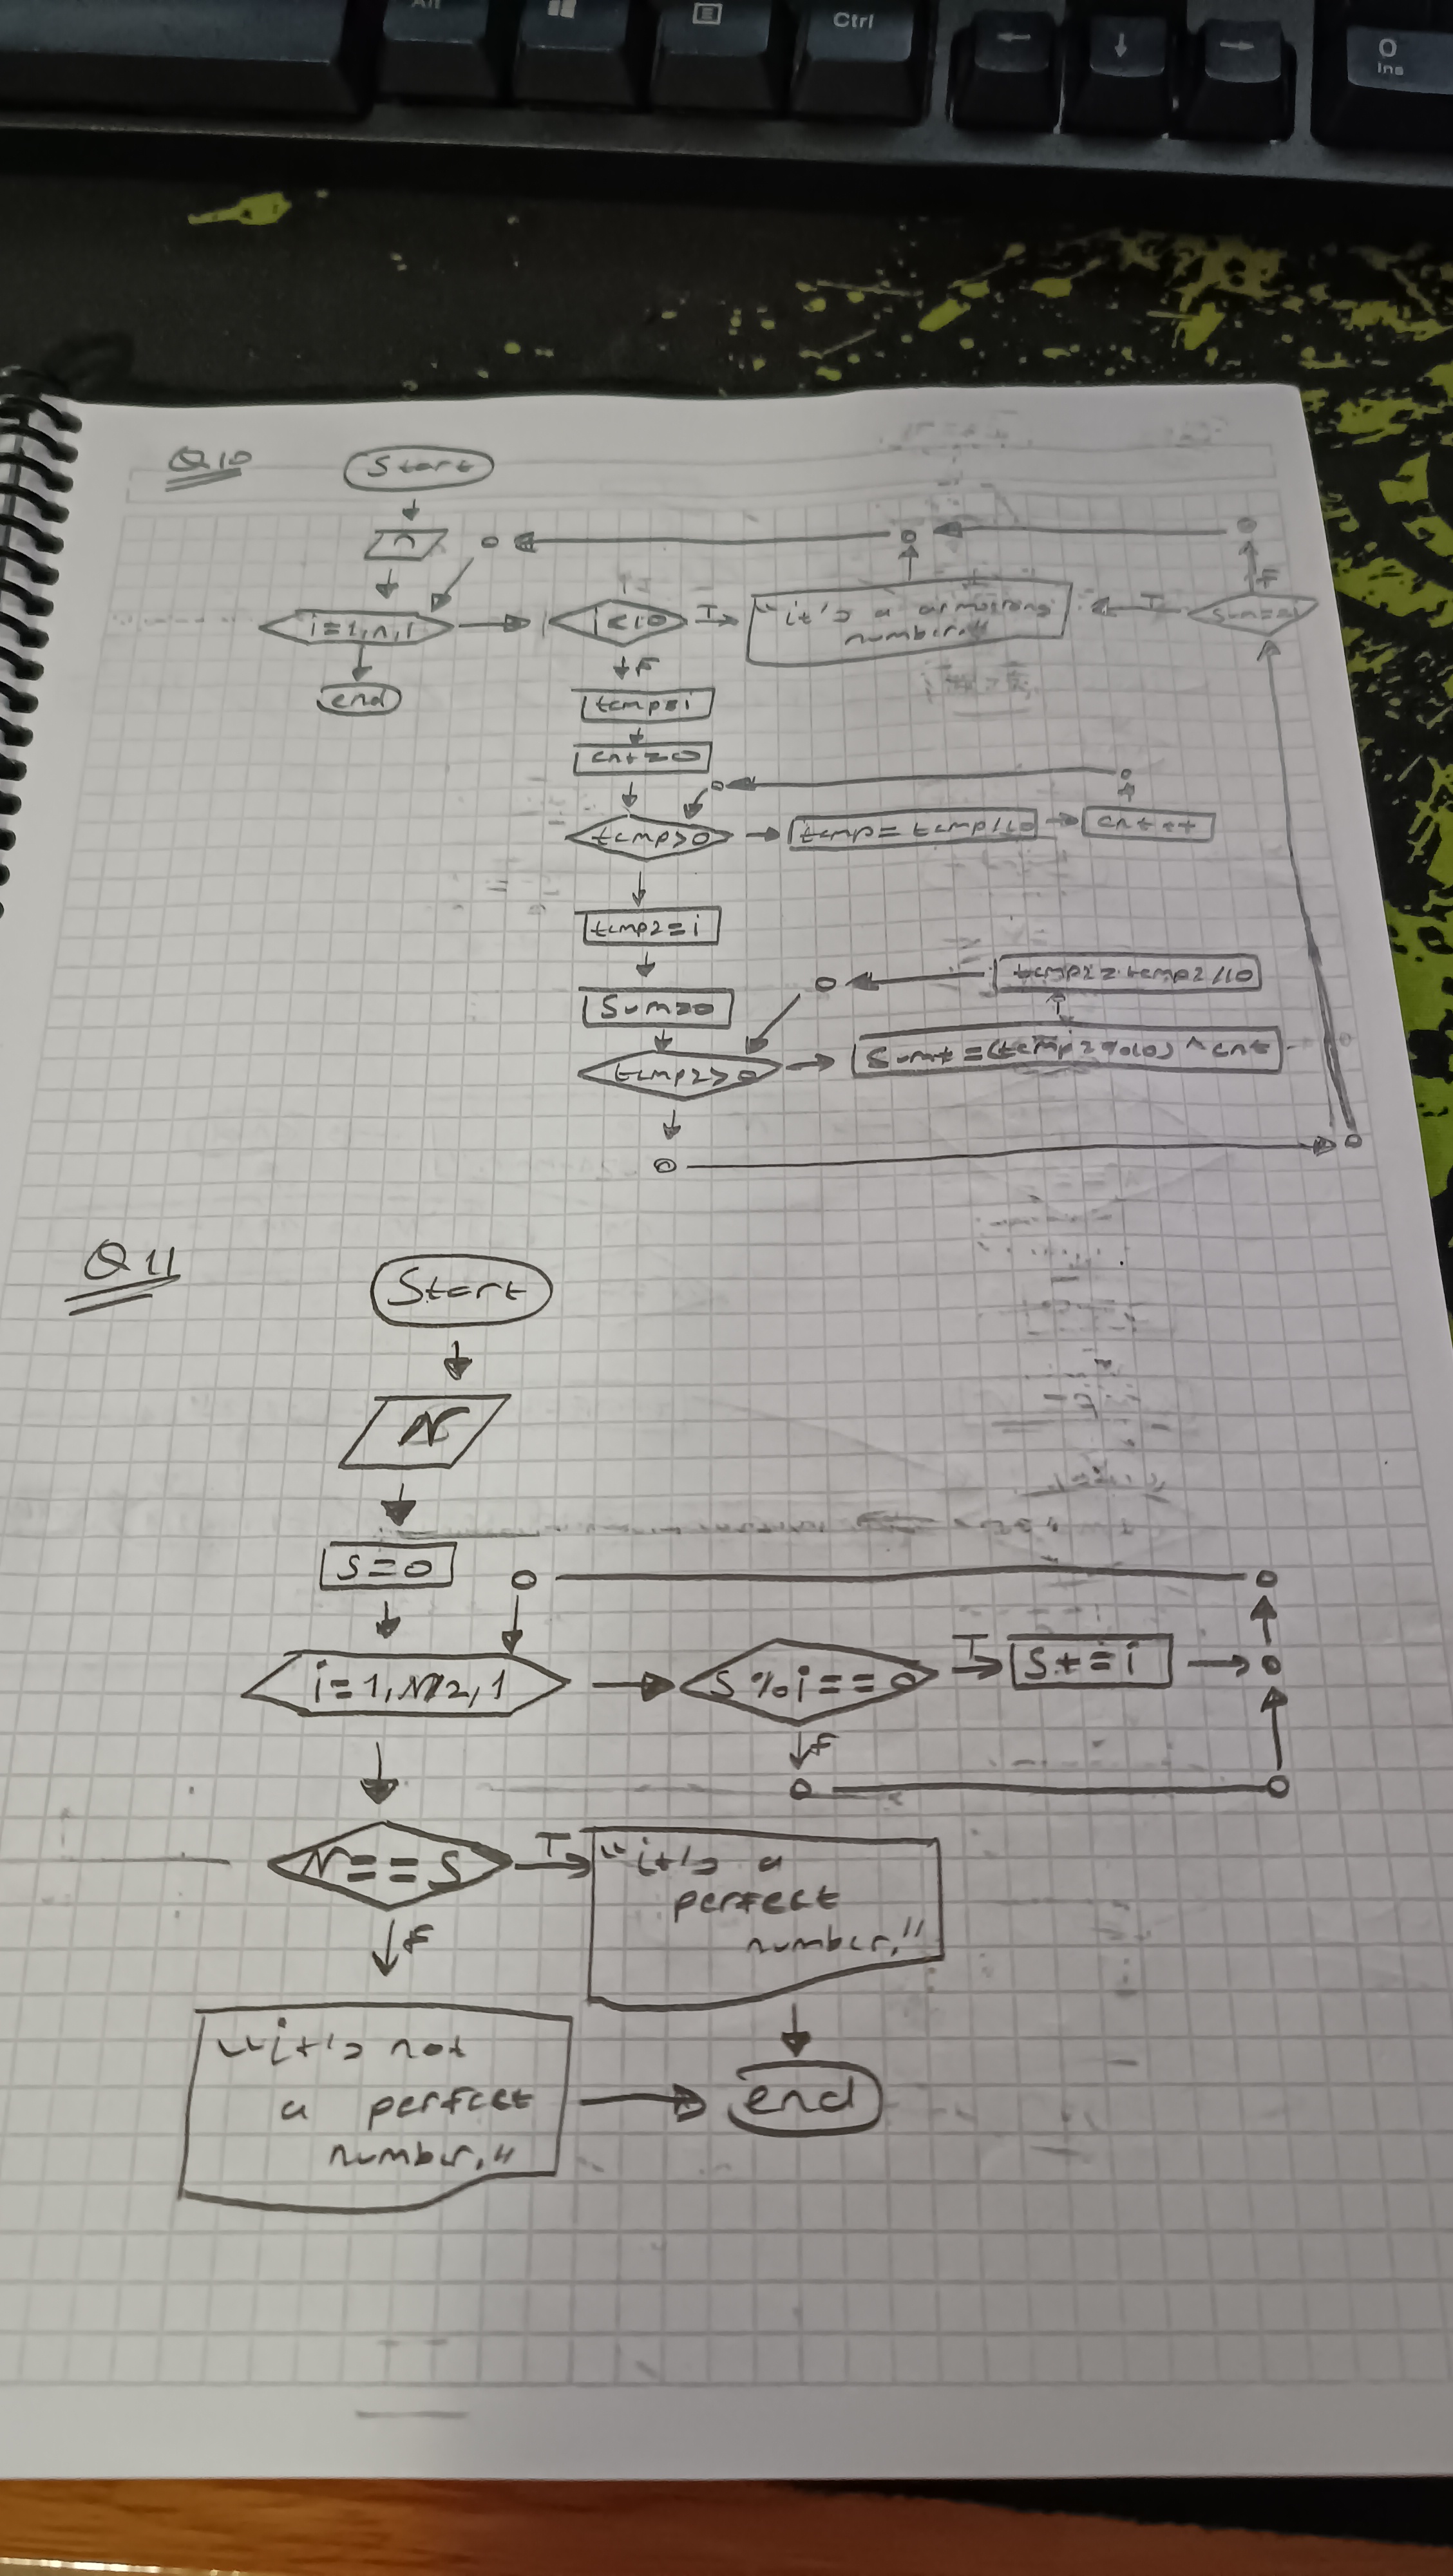 Alt
Ctrl
←
↓
→
0
Ins
Q10
Start
n
i=1,n,1
i<10
T
"it's a armstrong
number."
T
sum==i
F
end
F
temp=i
cnt=0
temp>0
temp=temp/10
cnt++
temp2=i
temp2=temp2/10
Sum=0
temp2>0
Sum+=(temp2%10)^cnt
Q11
Start
N
S=0
i=1,N/2,1
S%i==0
T
S+=i
F
N==S
T
"it's a
perfect
number."
F
"it's not
a perfect
number."
end